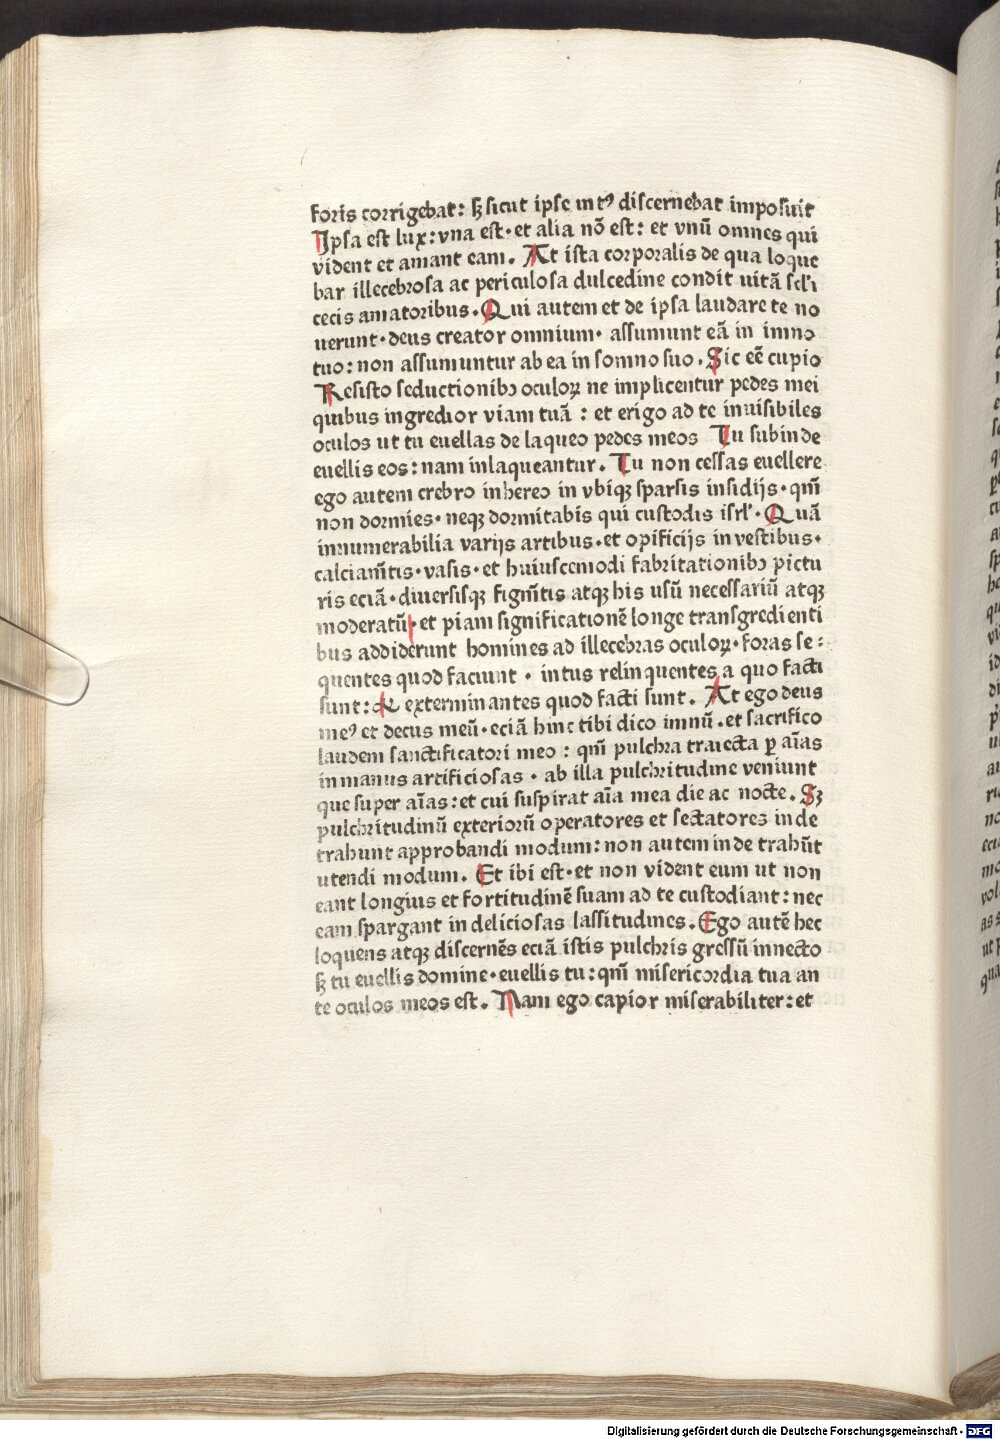 foris corrigebat: sꝫ sicut ipse intꝰ discernebat imposuit
Ipsa est lux: vna est· et alia nō est: et vnū omnes qui
vident et amant eam. At ista corporalis de qua loque
bar illecebrosa ac periculosa dulcedine condit uitā scl'i
cecis amatoribus. Qui autem et de ipsa laudare te no
uerunt· deus creator omnium· assumunt eā in imno
tuo: non assumuntur ab ea in somno suo. Sic eē cupio
Resisto seductionibꝫ oculoꝝ ne implicentur pedes mei
quibus ingredior viam tuā : et erigo ad te inuisibiles
oculos ut tu euellas de laqueo pedes meos Tu subinde
euellis eos: nam inlaqueantur. Tu non cessas euellere
ego autem crebro inhereo in vbiqꝫ sparsis insidijs· qm̄
non dormies· neqꝫ dormitabis qui custodis isrl'· Quā
innumerabilia varijs artibus· et opificijs in vestibus·
calciam̄tis· vasis· et huiuscemodi fabritationibꝫ pictu
ris eciā· diuersisqꝫ figm̄tis atqꝫ his usū necessariū atqꝫ
moderatū· et piam significationē longe transgredienti
bus addiderunt homines ad illecebras oculoꝝ· foras se:
quentes quod faciunt · intus relinquentes a quo facti
sunt: & exterminantes quod facti sunt. At ego deus
meꝰ et decus meū· eciā hinc tibi dico imnū· et sacrifico
laudem sanctificatori meo : qm̄ pulchra traiecta ꝑ aīas
in manus artificiosas · ab illa pulchritudine veniunt
que super aīas: et cui suspirat aīa mea die ac nocte. Sꝫ
pulchritudinū exteriorū operatores et sectatores inde
trahunt approbandi modum: non autem inde trahūt
utendi modum. Et ibi est· et non vident eum ut non
eant longius et fortitudinē suam ad te custodiant: nec
eam spargant in deliciosas lassitudines. Ego autē hec
loquens atqꝫ discernēs eciā istis pulchris gressū innecto
sꝫ tu euellis domine· euellis tu: qm̄ misericordia tua an
te oculos meos est. Nam ego capior miserabiliter: et
Digitalisierung gefördert durch die Deutsche Forschungsgemeinschaft - DFG